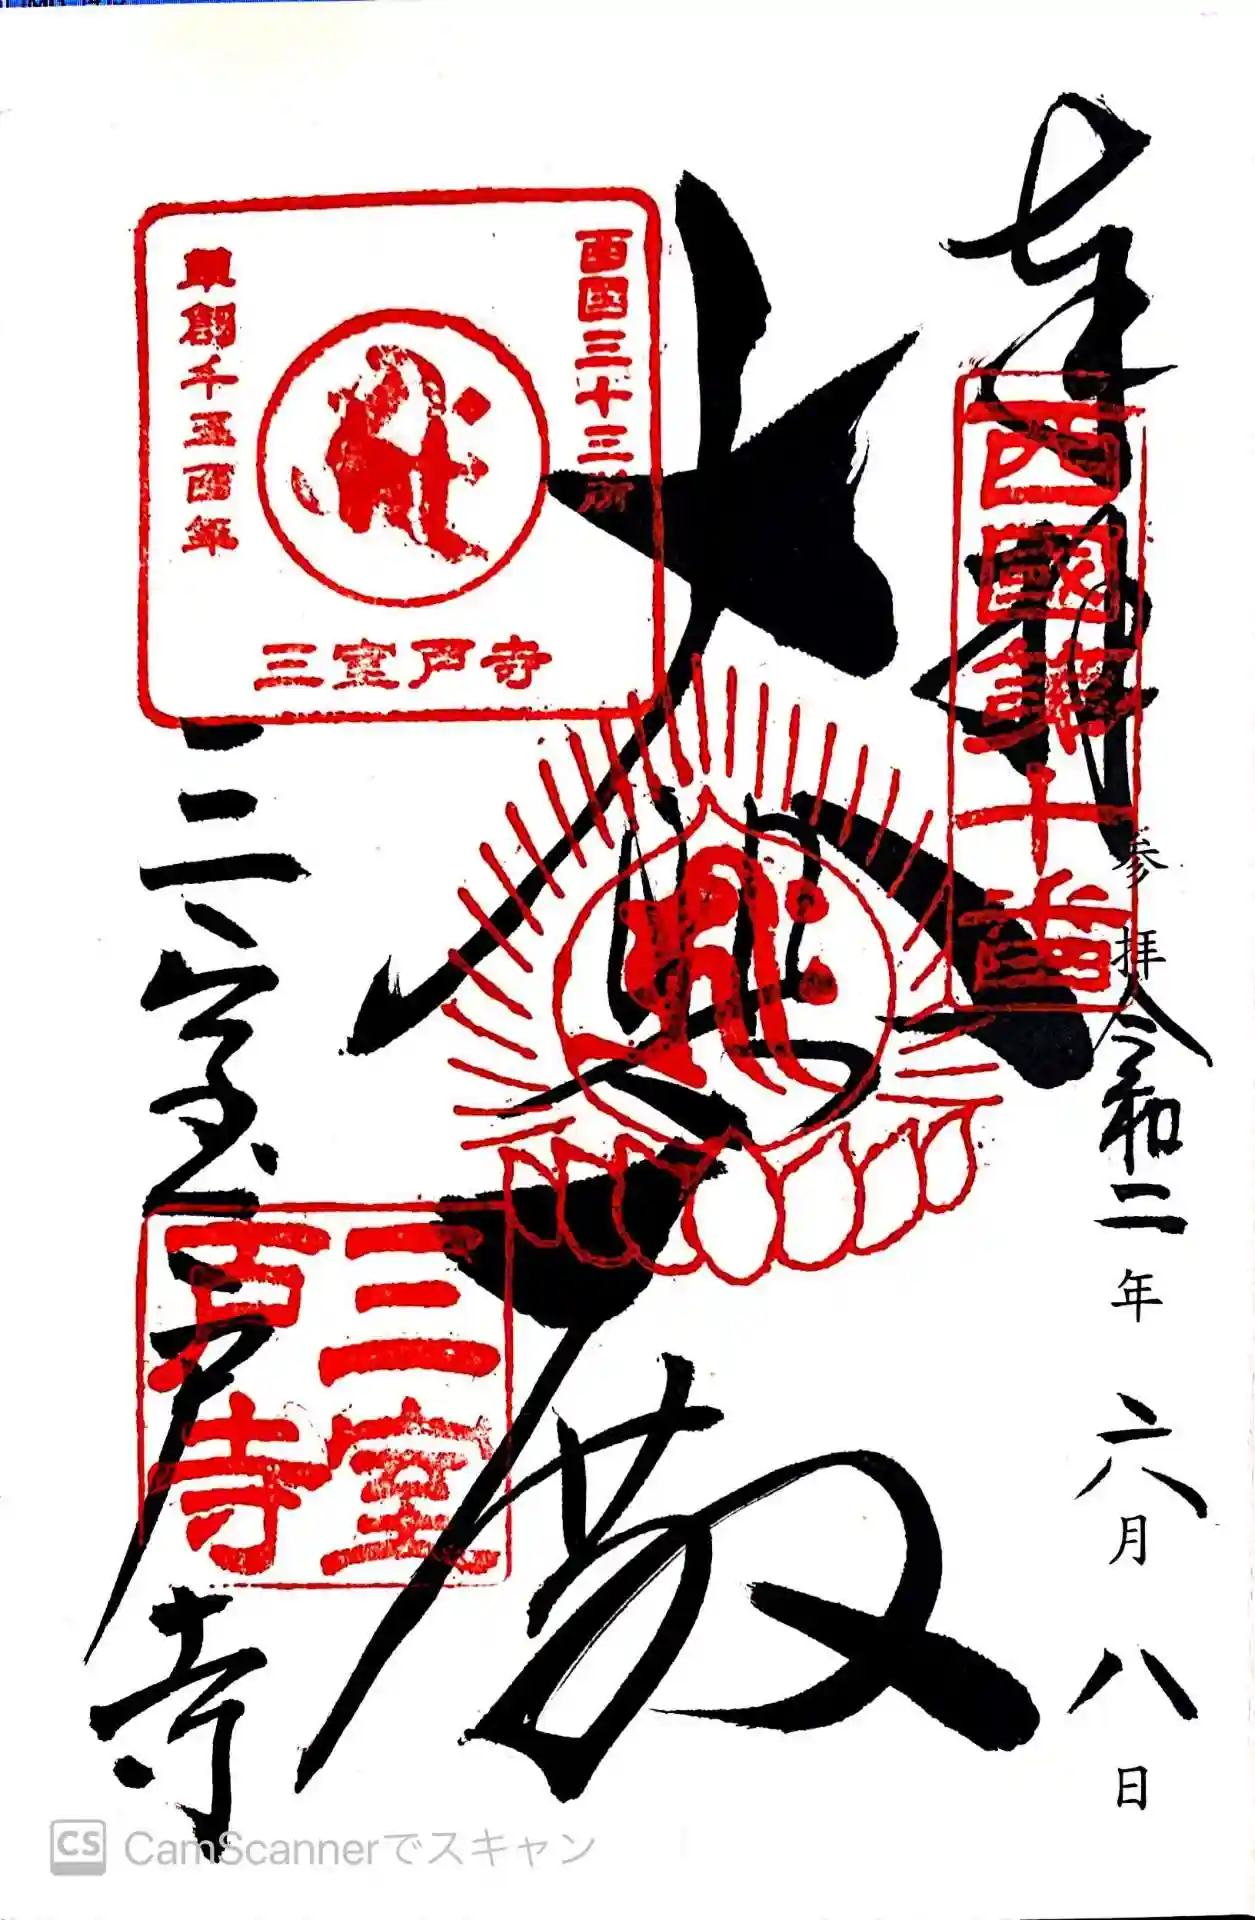 奉拝
西國第十番
参拝
令和二年六月八日
大悲殿
西国三十三所
草創千三百年
三室戸寺
三室戸寺
三室戸寺
CS CamScannerでスキャン